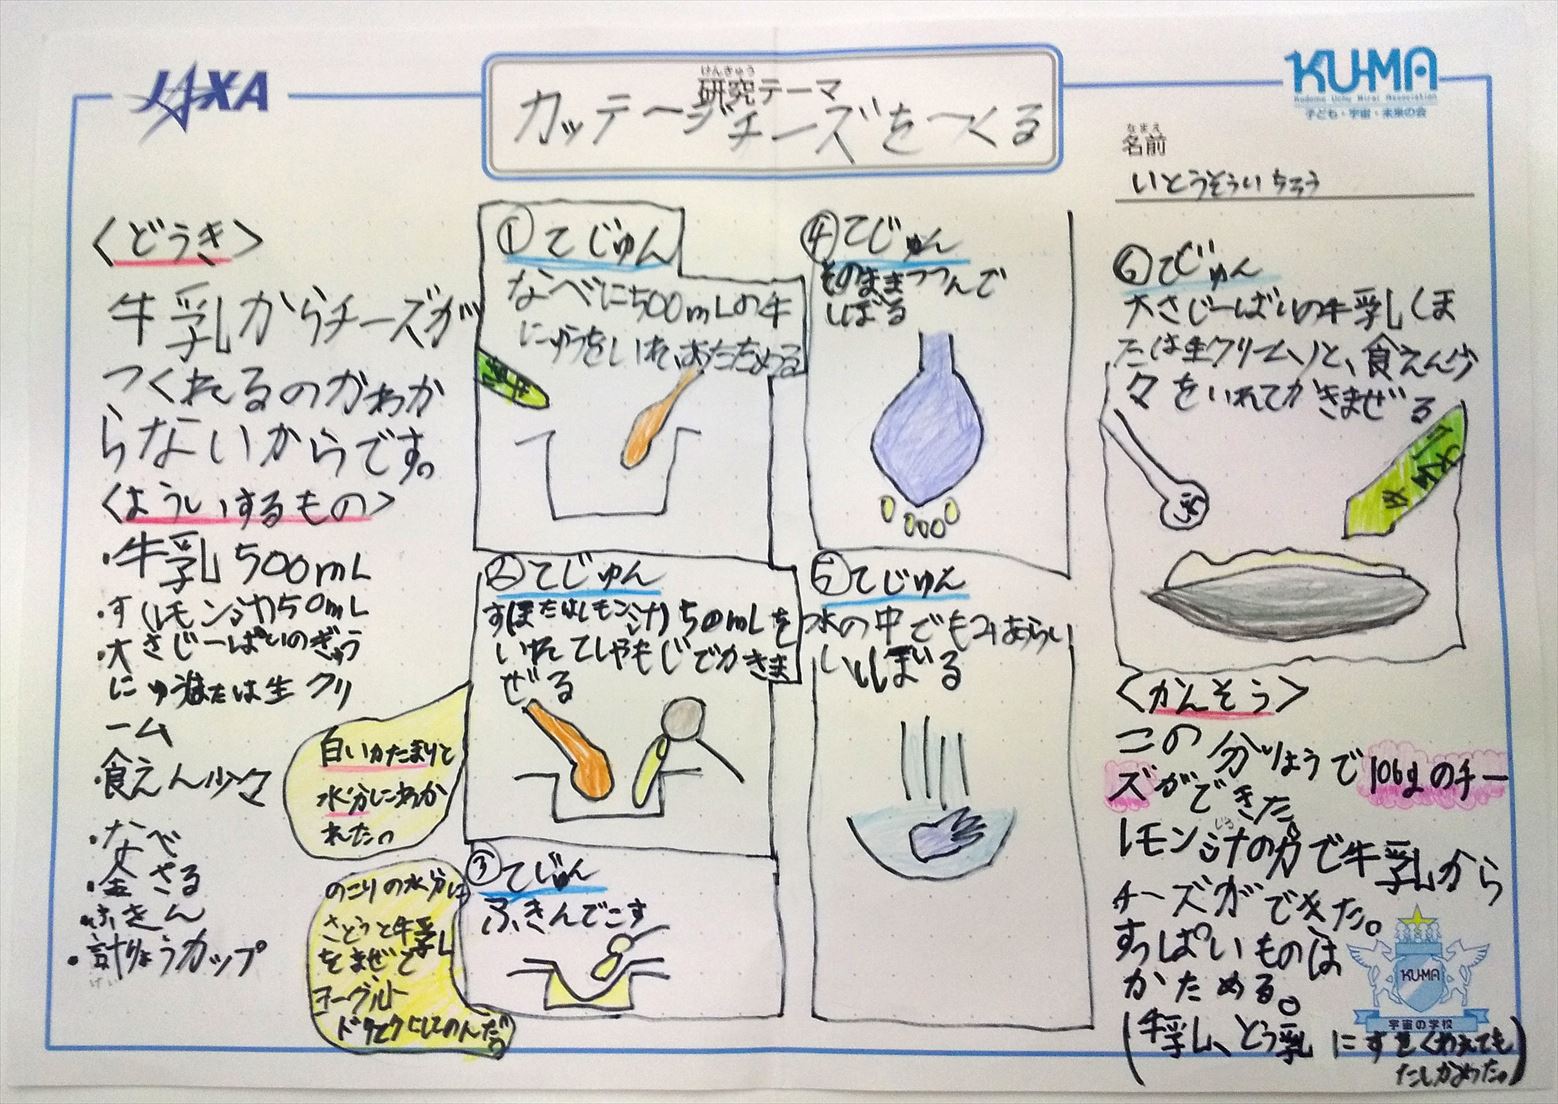 JAXA
けんきゅう
研究テーマ
カッテージチーズをつくる
KU-MA
Kodomo Uchu Mirai Association
子ども・宇宙・未来の会
なまえ
名前
いとうそういちろう
<どうき>
牛乳からチーズが
つくれるのかわか
らないからです。
<よういするもの>
・牛乳500mL
・す(レモン汁)50mL
・大さじ一ぱいのぎゅう
にゅうまたは生クリ
ーム
・食えん少々
・なべ
・金ざる
・ふきん
・計りょうカップ
けい
①てじゅん
なべに500mLの牛
にゅうをいれ、あたためる
牛乳
②てじゅん
す(またはレモン汁)50mLを
いれてしゃもじでかきま
ぜる
白いかたまりと
水分にわか
れた。
③てじゅん
ふきんでこす
のこりの水分に
さとうと牛乳
をまぜて
ヨーグルト
ドリンクにしてのんだ。
④てじゅん
そのままつつんで
しぼる
⑤てじゅん
水の中でもみあらい
しぼる
⑥てじゅん
大さじ一ぱいの牛乳(ま
たは生クリーム)と、食えん少
々をいれてかきまぜる
<かんそう>
この分りょうで106gのチー
ズができた
じる
レモン汁の力で牛乳から
チーズができた。
すっぱいものは
かためる。
(牛乳、とう乳にすをくわえても
たしかめた。)
KU-MA
宇宙の学校